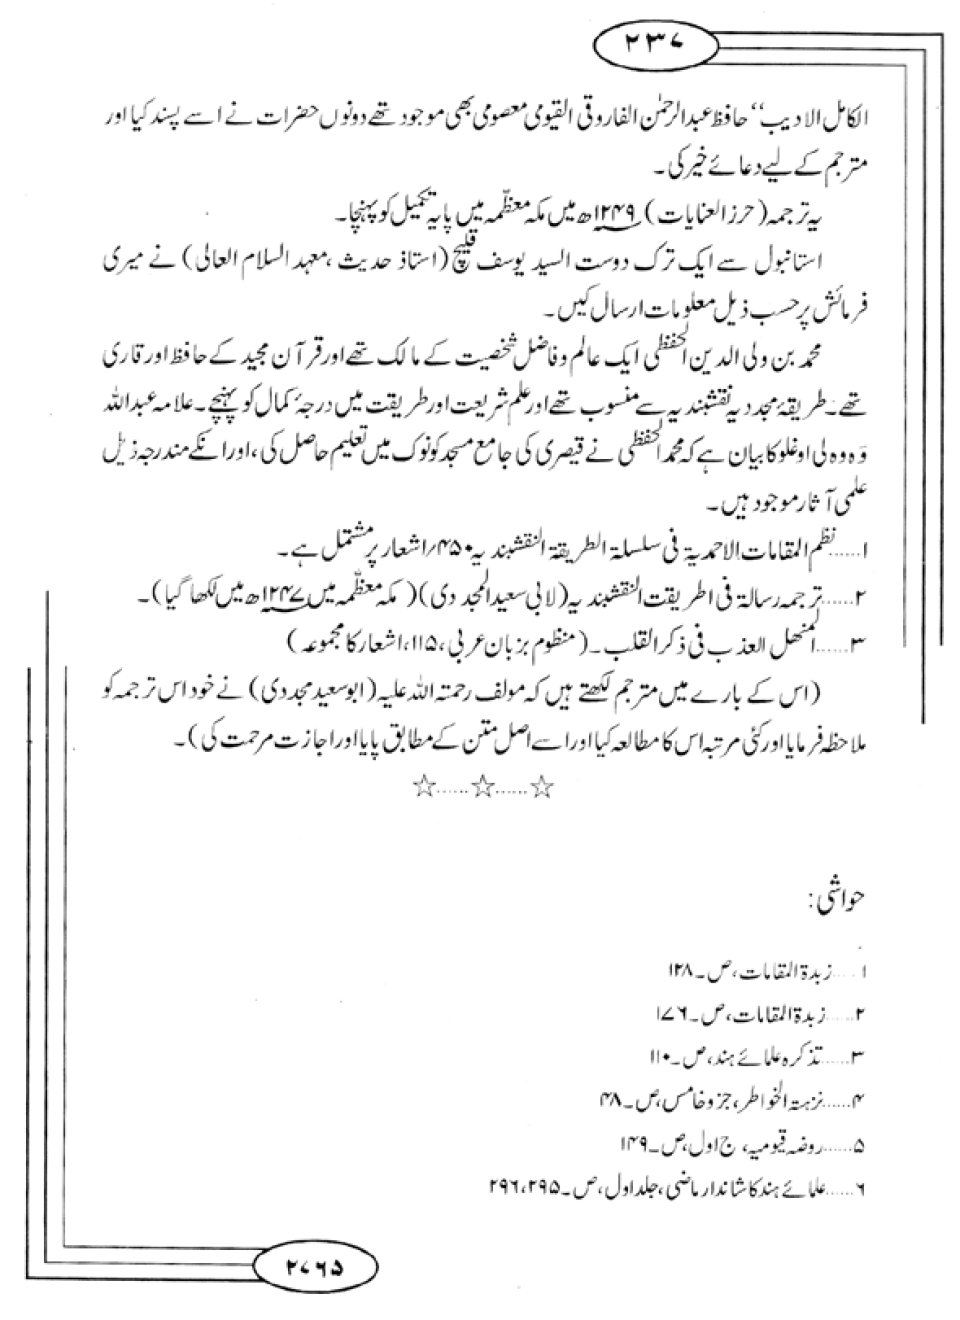 ۲۳۷
الکامل الادیب“ حافظ عبدالرحمٰن الفاروقی القیومی معصومی بھی موجود تھے دونوں حضرات نے اسے پسند کیا اور
مترجم کے لیے دعائے خیر کی۔
یہ ترجمہ (حرز العنایات) ۱۲۴۹ھ میں مکہ معظّمہ میں پایہ تکمیل کو پہنچا۔
استانبول سے ایک ترک دوست السید یوسف قلیچ (استاذ حدیث ،معہد السلام العالی) نے میری
فرمائش پر حسب ذیل معلومات ارسال کیں۔
محمد بن ولی الدین الحفظی ایک عالم و فاضل شخصیت کے مالک تھے اور قرآن مجید کے حافظ اور قاری
تھے۔ طریقۂ مجددیہ نقشبندیہ سے منسوب تھے اور علم شریعت اور طریقت میں درجۂ کمال کو پہنچے۔ علامہ عبداللہ
وَہ وہ لی اوغلو کا بیان ہے کہ محمد الحفظی نے قیصری کی جامع مسجد کونوک میں تعلیم حاصل کی ،اور انکے مندرجہ ذیل
علمی آثار موجود ہیں۔
۱......نظم المقامات الاحمدیۃ فی سلسلۃ الطریقۃ النقشبندیہ ۴۵۰؍اشعار پر مشتمل ہے۔
۲......ترجمہ رسالۃ فی اطریقت النقشبندیہ (لابی سعید المجددی) (مکہ معظّمہ میں ۱۲۴۷ھ میں لکھا گیا)۔
۳......المنھل العذب فی ذکر القلب۔ (منظوم بزبان عربی ،۱۱۵،اشعار کا مجموعہ)
(اس کے بارے میں مترجم لکھتے ہیں کہ مولف رحمتہ اللہ علیہ (ابو سعید مجددی) نے خود اس ترجمہ کو
ملاحظہ فرمایا اور کئی مرتبہ اس کا مطالعہ کیا اور اسے اصل متن کے مطابق پایا اور اجازت مرحمت کی)۔
☆......☆......☆
حواشی:
۱......زبدۃ المقامات ،ص۔۱۲۸
۲......زبدۃ المقامات،ص۔۱۷۶
۳......تذکرہ علمائے ہند،ص۔۱۱۰
۴......نزہتہ الخواطر ،جزو خامس،ص۔۴۸
۵......روضہ قیومیہ، ج اول،ص۔۱۴۹
۶......علمائے ہند کا شاندار ماضی ،جلد اول ،ص۔۲۹۶،۲۹۵
۲۷۶۵